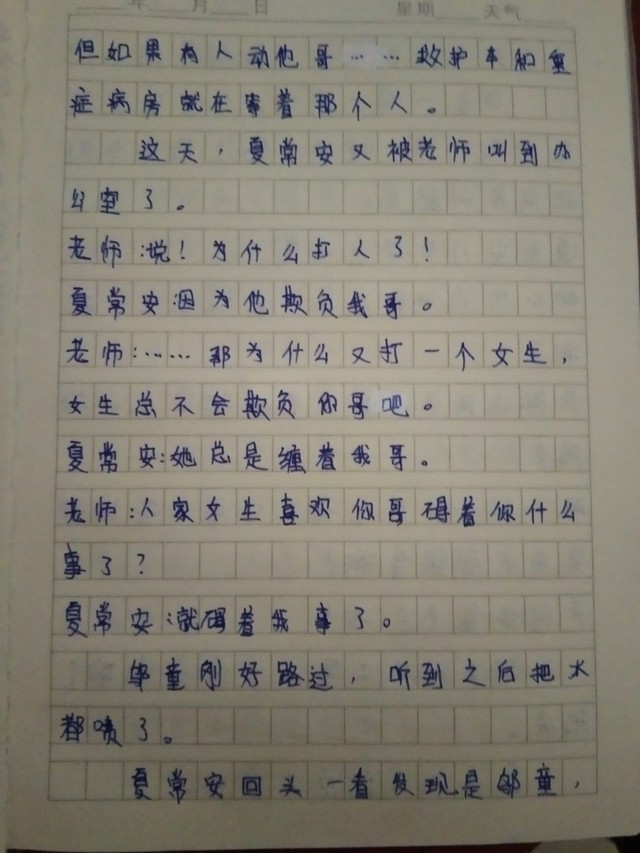 年 月 日 星期 天气
但如果有人动他哥……救护车和重
症病房就在等着那个人。
这天，夏常安又被老师叫到办
公室了。
老师:说！为什么打人了！
夏常安:因为他欺负我哥。
老师:……那为什么又打一个女生，
女生总不会欺负你哥吧。
夏常安:她总是缠着我哥。
老师:人家女生喜欢你哥碍着你什么
事了？
夏常安:就碍着我事了。
邹童刚好路过，听到之后把水
都喷了。
夏常安回头一看发现是邹童，